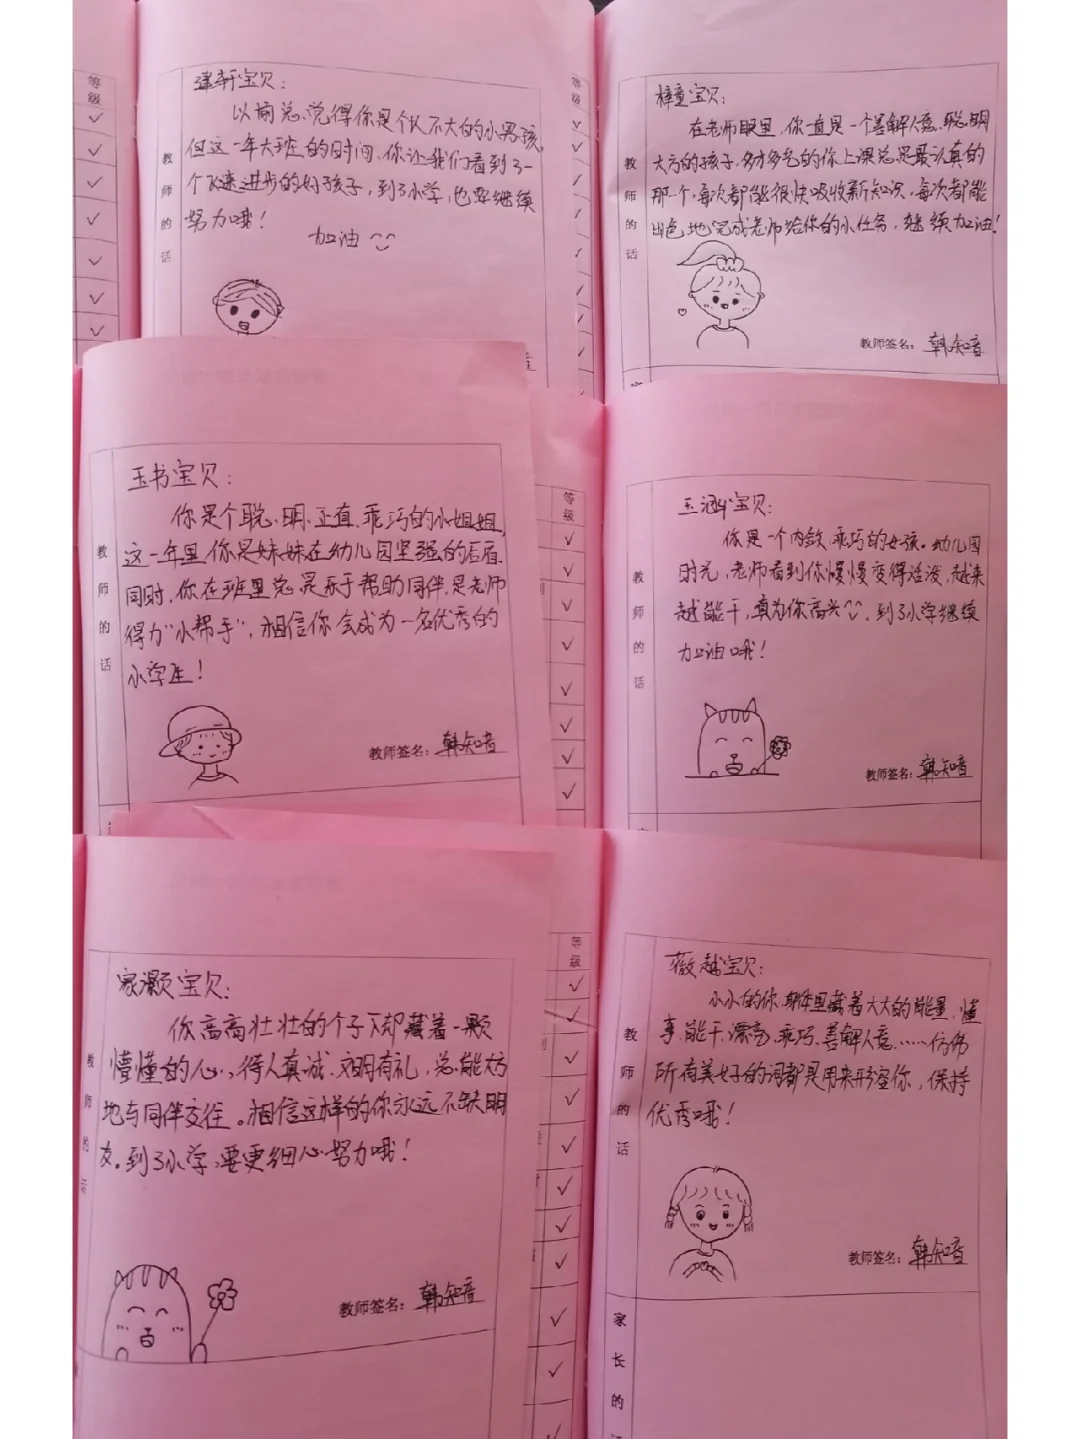 等级
教师的话
建轩宝贝：
以前总觉得你是个长不大的小男孩，
但这一年大班的时间，你让我们看到了一
个飞速进步的好孩子，到了小学，也要继续
努力哦！
加油
等级
教师的话
梓童宝贝：
在老师眼里，你一直是一个善解人意、聪明
大方的孩子，多才多艺的你上课总是最认真的
那一个，每次都能很快吸收新知识，每次都能
出色地完成老师给你的小任务，继续加油！
教师签名：韩知音
教师的话
玉书宝贝：
你是个聪明、正直、乖巧的小姐姐，
这一年里你是妹妹在幼儿园坚强的后盾，
同时，你在班里总是乐于帮助同伴，是老师
得力“小帮手”，相信你会成为一名优秀的
小学生！
教师签名：韩知音
等级
教师的话
玉涵宝贝：
你是一个内敛、乖巧的女孩。幼儿园
时光，老师看到你慢慢变得活泼，越来
越能干，真为你高兴，到了小学继续
加油哦！
教师签名：韩知音
教师的话
家灏宝贝：
你高高壮壮的个子下却藏着一颗
懵懂的心，待人真诚、文明有礼，总能大方
地与同伴交往。相信这样的你永远不缺朋
友。到了小学，要更细心、努力哦！
教师签名：韩知音
等级
教师的话
薇越宝贝：
小小的你，身体里藏着大大的能量，懂
事、能干、漂亮、乖巧、善解人意……仿佛
所有美好的词都是用来形容你，保持
优秀哦！
教师签名：韩知音
家长的